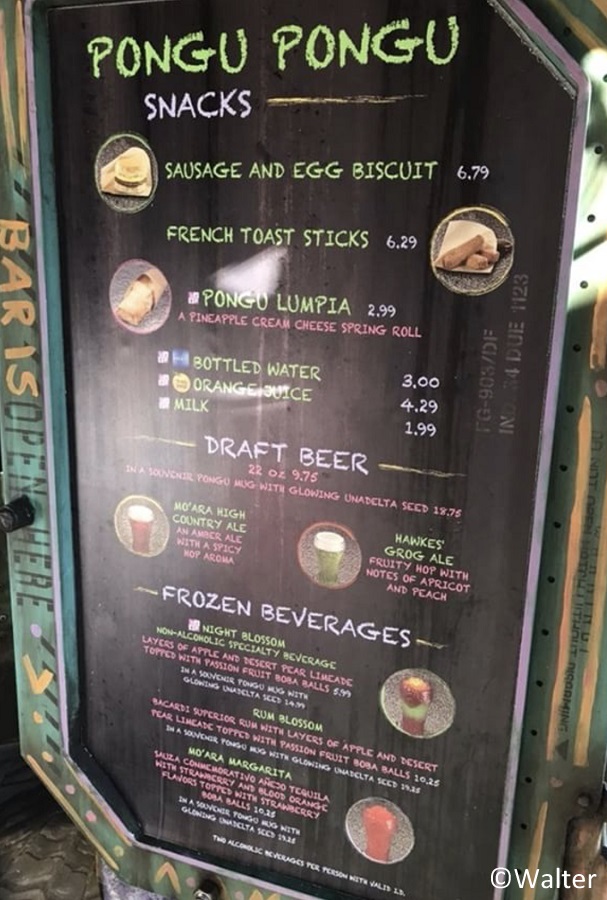 PONGU PONGU
SNACKS
SAUSAGE AND EGG BISCUIT 6.79
FRENCH TOAST STICKS 6.29
PONGU LUMPIA 2.99
A PINEAPPLE CREAM CHEESE SPRING ROLL
BOTTLED WATER 3.00
ORANGE JUICE 4.29
MILK 1.99
DRAFT BEER
22 OZ 9.75
IN A SOUVENIR PONGU MUG WITH GLOWING UNADELTA SEED 18.75
MO'ARA HIGH
COUNTRY ALE
AN AMBER ALE
WITH A SPICY
HOP AROMA
HAWKES'
GROG ALE
FRUITY HOP WITH
NOTES OF APRICOT
AND PEACH
FROZEN BEVERAGES
NIGHT BLOSSOM
NON-ALCOHOLIC SPECIALTY BEVERAGE
LAYERS OF APPLE AND DESERT PEAR LIMEADE
TOPPED WITH PASSION FRUIT BOBA BALLS 5.99
IN A SOUVENIR PONGU MUG WITH
GLOWING UNADELTA SEED 14.99
RUM BLOSSOM
BACARDI SUPERIOR RUM WITH LAYERS OF APPLE AND DESERT
PEAR LIMEADE TOPPED WITH PASSION FRUIT BOBA BALLS 10.25
IN A SOUVENIR PONGU MUG WITH GLOWING UNADELTA SEED 19.25
MO'ARA MARGARITA
SAUZA CONMEMORATIVO AÑEJO TEQUILA
WITH STRAWBERRY AND BLOOD ORANGE
FLAVORS TOPPED WITH STRAWBERRY
BOBA BALLS 10.25
IN A SOUVENIR PONGU MUG WITH
GLOWING UNADELTA SEED 19.25
TWO ALCOHOLIC BEVERAGES PER PERSON WITH VALID I.D.
BAR IS OPEN HERE
DUE 1123
©Walter